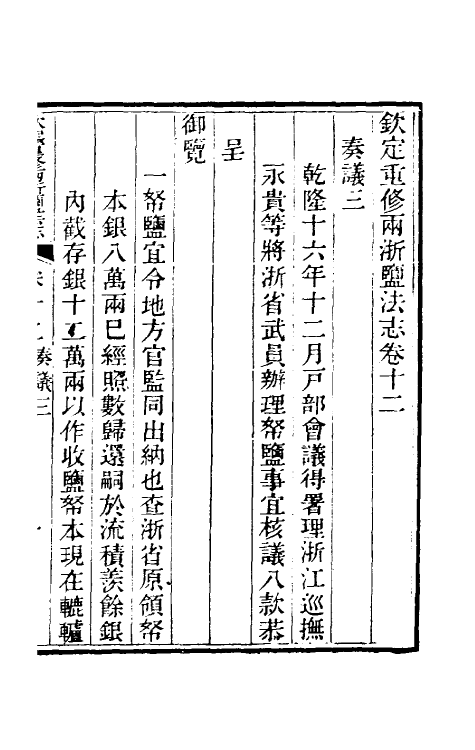 欽定重修兩浙鹽法志卷十二
奏議三
乾隆十六年十二月戸部會議得署理浙江巡撫
永貴等將浙省武員辦理帑鹽事宜核議八款恭
呈
御覽
一帑鹽宜令地方官監同出納也查浙省原領帑
本銀八萬兩已經照數歸還嗣於流積羨餘銀
內截存銀十二萬兩以作收鹽帑本現在轆轤
奏議三